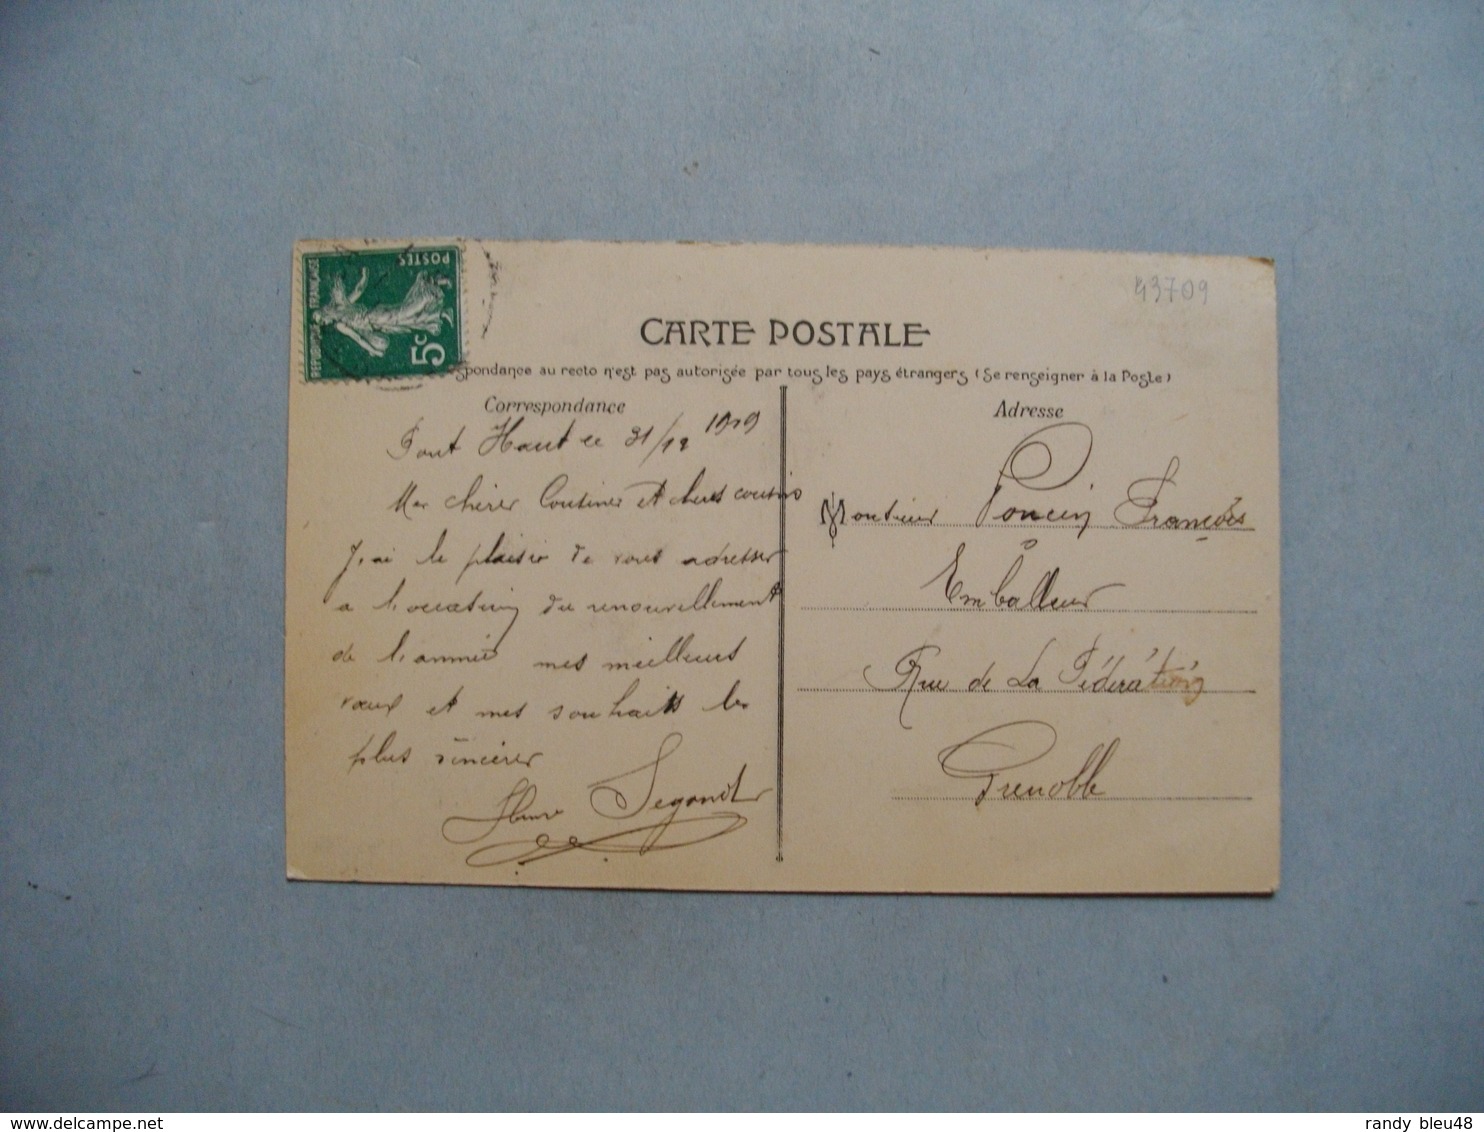 POSTES
REPUBLIQUE FRANÇAISE
5c
43709
CARTE POSTALE
spondance au recto n'est pas autorisée par tous les pays étrangers (Se renseigner à la Poste)
Correspondance
Pont Haut le 31/12 1909
Mes chères Cousines et chers cousins
J'ai le plaisir de vous adresser
a l'occasion du renouvellement
de l'année mes meilleurs
vœux et mes souhaits les
plus sincères
Segond
Adresse
Monsieur Poncin François
Emballeur
Rue de La Fédération
Grenoble
delcampe.net
randy bleu48